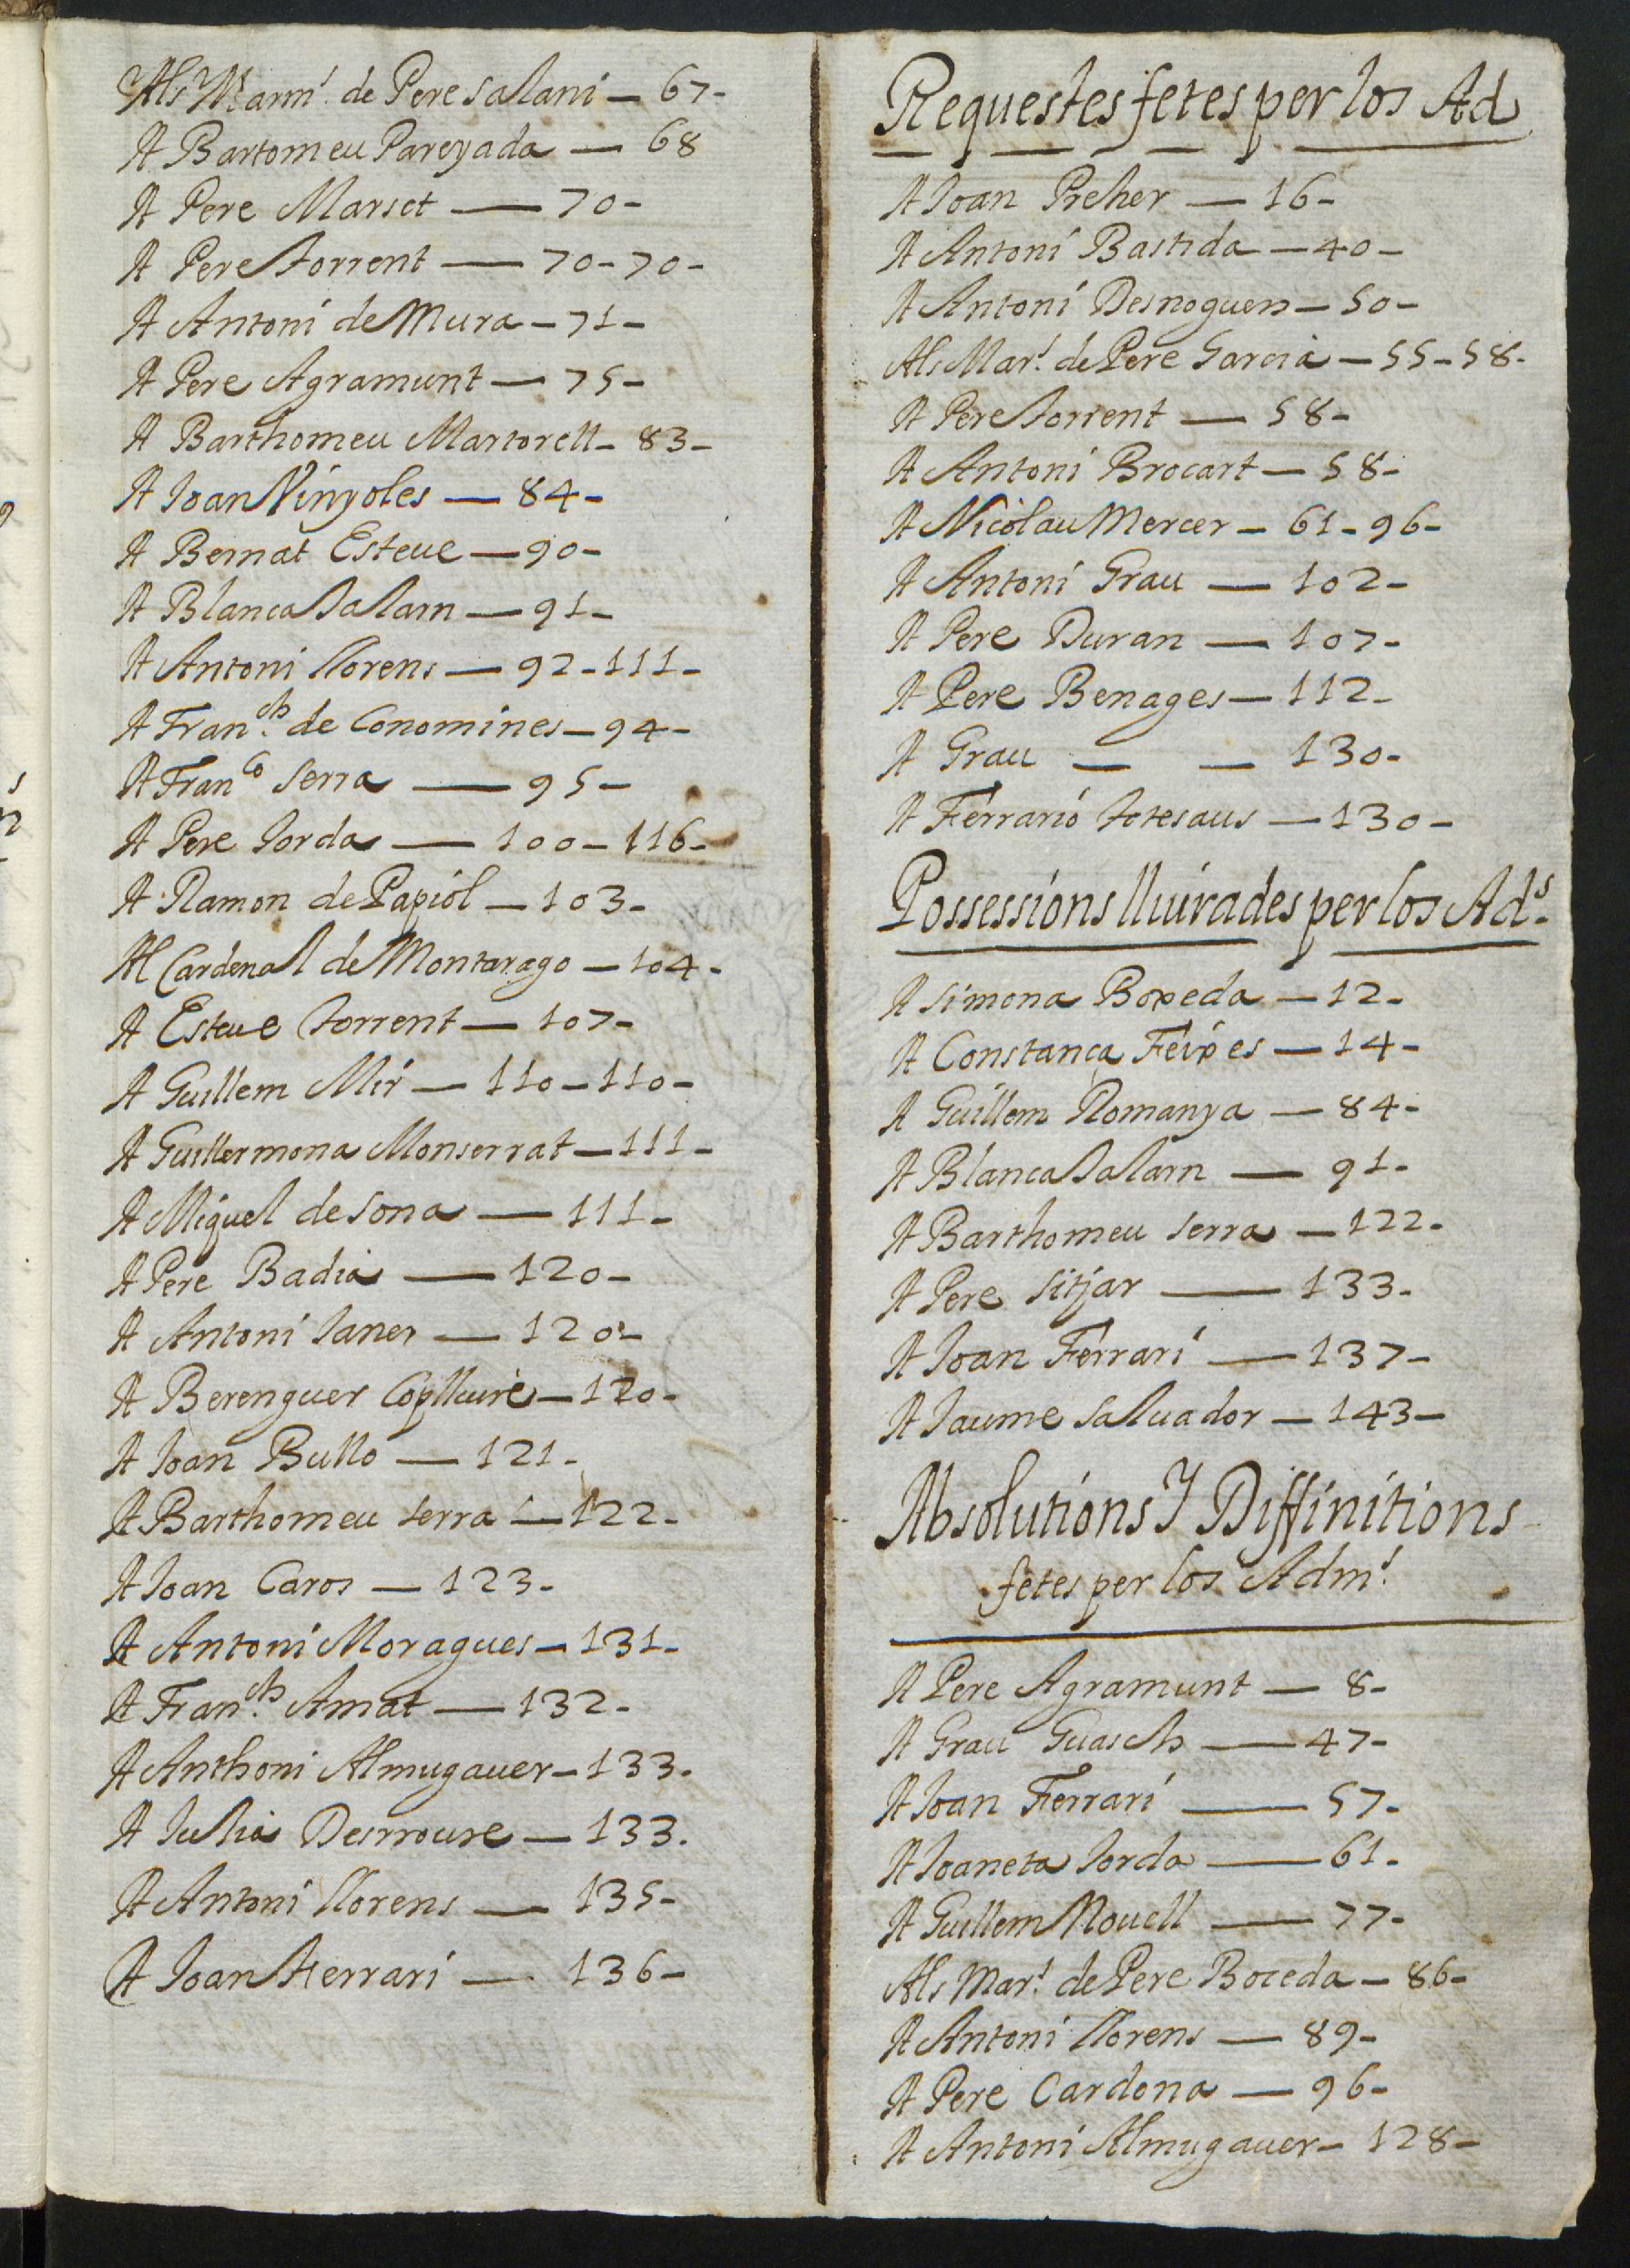 Als Marm.ˢ de Pere Salani — 67-
A Bartomeu Pareyada — 68
A Pere Marset — 70-
A Pere Torrent — 70-70-
A Antoni de Mura — 71-
A Pere Agramunt — 75-
A Barthomeu Martorell — 83-
A Ioan Vinyoles — 84-
A Bernat Esteue — 90-
A Blanca Salarn — 91-
A Antoni llorens — 92-111-
A Fran.ᶜʰ de Conomines — 94-
A Franᶜᵒ Serra — 95-
A Pere Iorda — 100-116-
A Ramon de Papiol — 103-
Al Cardenal de Montarago — 104-
A Esteue Torrent — 107-
A Guillem Mir — 110-110-
A Guillermona Monserrat — 111-
A Miquel de Sona — 111-
A Pere Badia — 120-
A Antoni Ianer — 120-
A Berenguer Coplliure — 120-
A Ioan Bullo — 121-
A Barthomeu Serra — 122-
A Ioan Caros — 123-
A Antoni Moragues — 131-
A Fran.ᶜʰ Amat — 132-
A Anthoni Almugauer — 133-
A Iulia Desrroure — 133.
A Antoni llorens — 135-
A Ioan Ferrari — 136-
Requestes fetes per los Ad
A Ioan Preher — 16-
A Antoni Bastida — 40-
A Antoni Desnoguers — 50-
Als Mar.ˢ de Pere Garcia — 55-58-
A Pere Torrent — 58-
A Antoni Brocart — 58-
A Nicolau Mercer — 61-96-
A Antoni Grau — 102-
A Pere Duran — 107-
A Pere Benages — 112-
A Grau — — 130-
A Ferrario Totesaus — 130-
Possessions lliurades per los Ad.ˢ
A Simona Boxeda — 12-
A Constanca Feixes — 14-
A Guillem Romanya — 84-
A Blanca Salarn — 91-
A Barthomeu Serra — 122-
A Pere Sitjar — 133-
A Ioan Ferrari — 137-
A Iaume Saluador — 143-
Absolutions Y Diffinitions
fetes per los Adm.ˢ
A Pere Agramunt — 8-
A Grau Guasch — 47-
A Ioan Ferrari — 57-
A Ioaneta Iorda — 61-
A Guillem Nouell — 77-
Als Mar.ˢ de Pere Boceda — 86-
A Antoni llorens — 89-
A Pere Cardona — 96-
A Antoni Almugauer — 128-